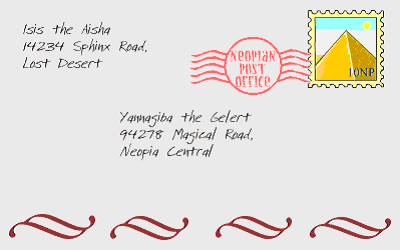 Isis the Aisha
14234 Sphinx Road,
Lost Desert
NEOPIAN
POST
OFFICE
10NP
Yannagiba the Gelert
94278 Magical Road,
Neopia Central